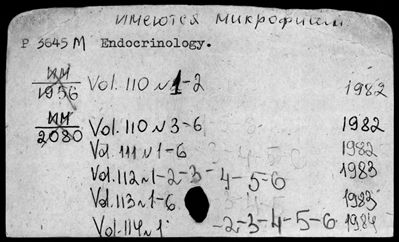 имеются микрофиши.
P 3645 M Endocrinology.
ИМ
1956 Vol. 110 N 1-2 1982
ИМ
2080 Vol. 110 N 3-6 1982
Vol. 111 N 1-6 1982
Vol. 112 N 1-2-3-4-5-6 1983
Vol. 113 N 1-6 1983
Vol. 114 N 1 -2-3-4-5-6 1984